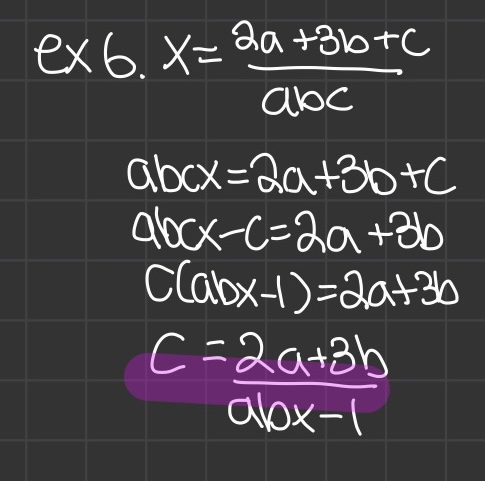 ex 6. x = 2a+3b+c / abc
abcx=2a+3b+c
abcx-c=2a+3b
c(abx-1)=2a+3b
c = 2a+3b / abx-1